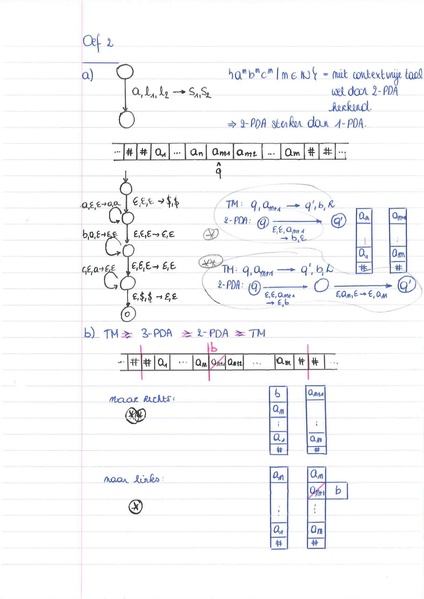 Oef 2
a)
a, l₁, l₂ → S₁, S₂
{a^m b^m c^m | m ∈ ℕ} = niet contextvrije taal
wel door 2-PDA
herkend
⇒ 2-PDA sterker dan 1-PDA.
... # # a₁ ... an am+1 am+2 ... am # # ...
q̂
ε,ε,ε → $,$
a,ε,ε → a,a
ε,ε,ε → ε,ε
b,a,ε → ε,ε
ε,ε,ε → ε,ε
c,ε,a → ε,ε
ε,$,$ → ε,ε
TM: q, am+1 → q', b, R
2-PDA: q q'
ε,ε,am+1
→ b,ε
an am+1
⋮ ⋮
a₁ am
# #
TM: q, am+1 → q', b, L
2-PDA: q q'
ε,ε,am+1
→ ε,b
ε,am,ε → ε,am
b) TM ≥ 3-PDA ≥ 2-PDA ≥ TM
b
... # # a₁ ... am am+1 am+2 ... am # # ...
naar rechts:
**
b am+2
am
⋮ ⋮
a₁ am
# #
naar links:
*
am am
am+1 b
⋮ ⋮
a₁ am
# #